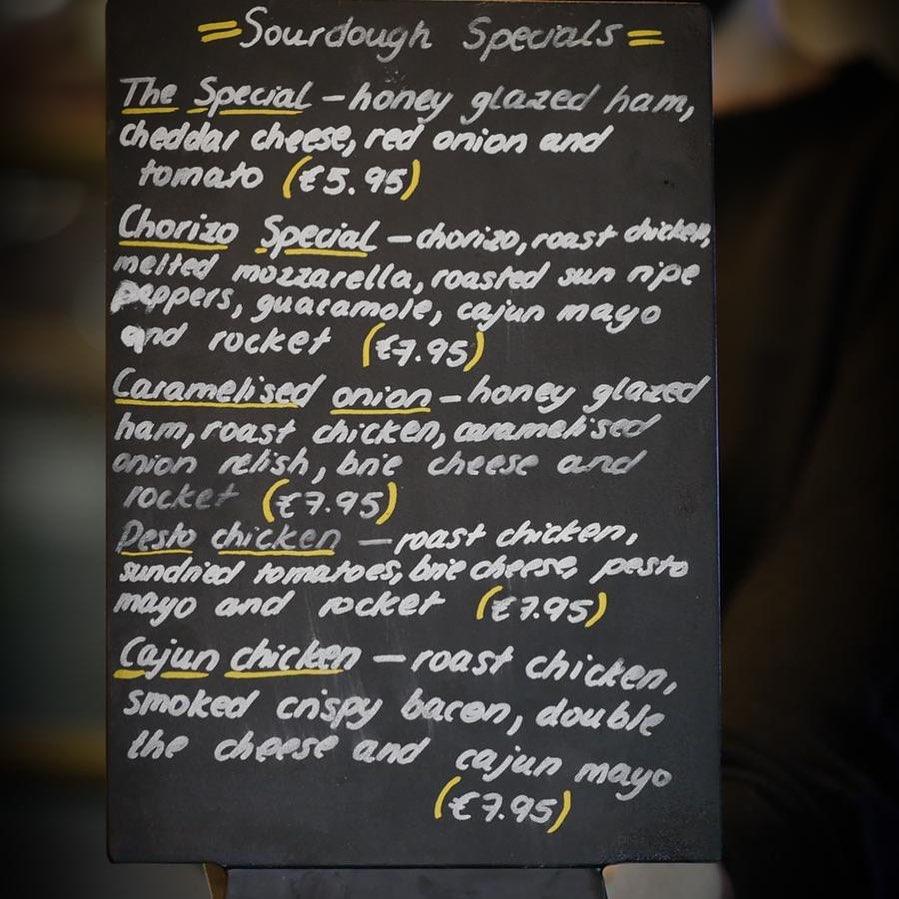 =Sourdough Specials=
The Special - honey glazed ham,
cheddar cheese, red onion and
tomato (€5.95)
Chorizo Special - chorizo, roast chicken,
melted mozzarella, roasted sun ripe
peppers, guacamole, cajun mayo
and rocket (€7.95)
Caramelised onion - honey glazed
ham, roast chicken, caramelised
onion relish, brie cheese and
rocket (€7.95)
Pesto chicken - roast chicken,
sundried tomatoes, brie cheese, pesto
mayo and rocket (€7.95)
Cajun chicken - roast chicken,
smoked crispy bacon, double
the cheese and cajun mayo
(€7.95)